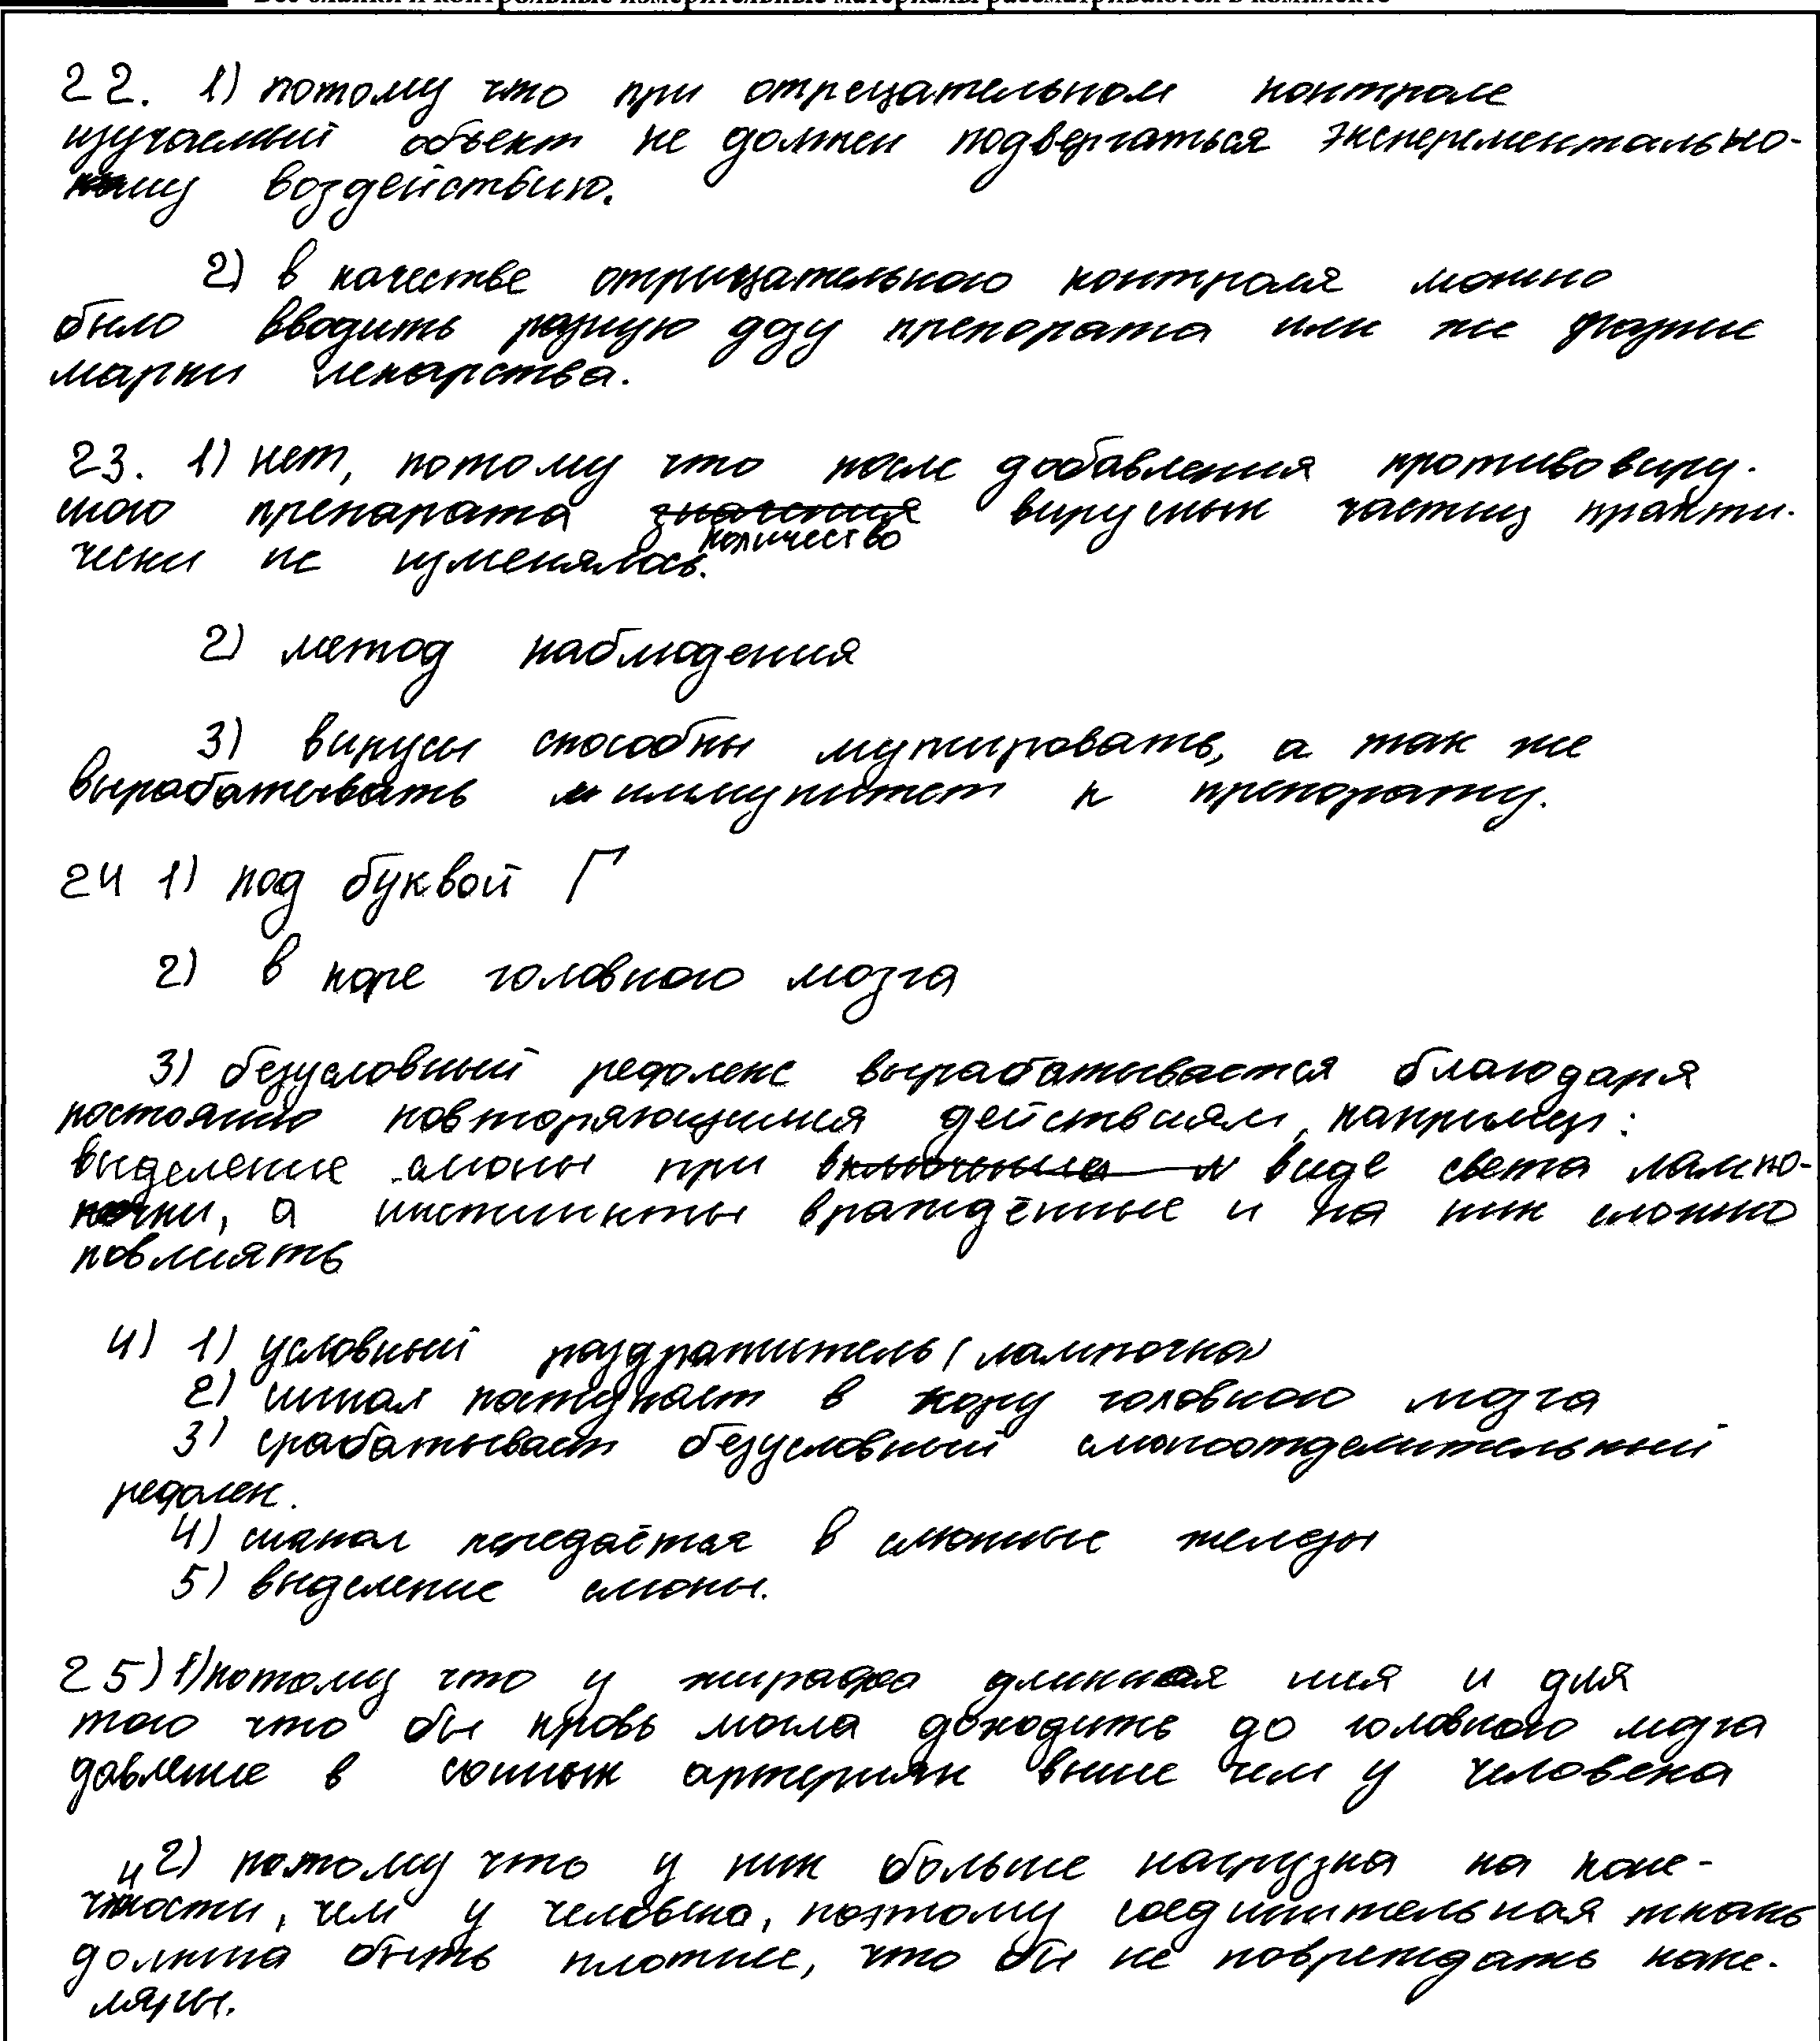 Все бланки и контрольные измерительные материалы рассматриваются в комплекте
22. 1) потому что при отрецательном контроле
изучаемый объект не должен подвергаться эксперементально-
му воздействию.
2) в качестве отрицательного контроля можно
было вводить разную дозу препората или же разные
марки лекарства.
23. 1) нет, потому что после добавления противовиру-
сного препарата значения вирусных частиц практи-
количество
чески не изменялось.
2) метод наблюдения
3) вирусы способны мутировать, а так же
вырабатывать иммунитет к препорату.
24 1) под буквой Г
2) в коре головного мозга
3) безусловный рефлекс вырабатывается благодаря
постоянно повторяющимся действиям, например:
выделение слюны при включении виде света лампо-
чки, а инстинкты враждённые и на них сложно
повлиять
4) 1) условный раздражитель (лампочка)
2) сигнал поступает в кору головного мозга
3) срабатывает безусловный слюноотделительный
рефлек.
4) сигнал передаётся в слюнные железы
5) выделение слюны.
25) 1) потому что у жирафа длинная шея и для
того что бы кровь могла доходить до головного мозга
давление в сонных артериях выше чем у человека
2) потому что у них больше нагрузка на коне-
чности, чем у человека, поэтому соединительная ткань
должна быть плотнее, что бы не повреждать капи-
ляры.